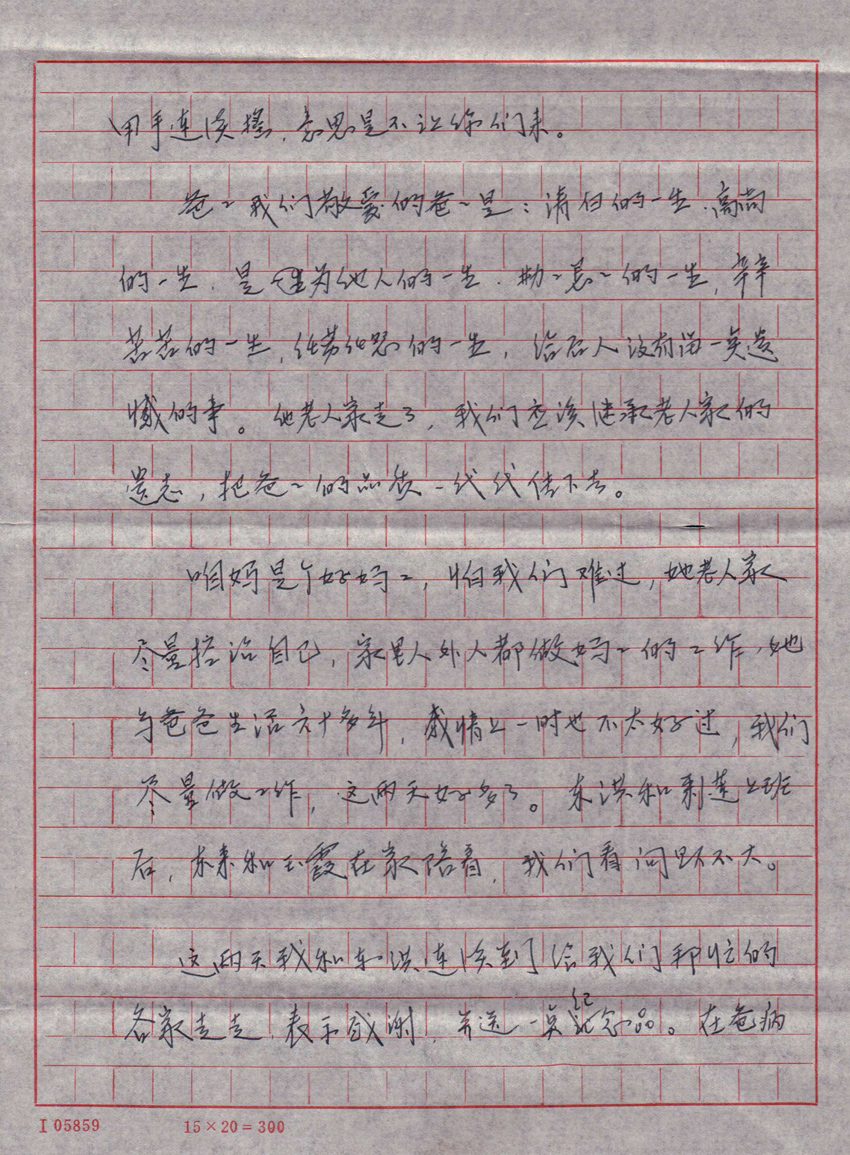 用手连续摇，意思是不让你们来。
爸々我们敬爱的爸々是：清白的一生，高尚
的一生，是为他人的一生，勤々恳々的一生，辛辛
苦苦的一生，任劳任怨的一生，给后人没有留一点遗
憾的事。他老人家走了，我们应该继承老人家的
遗志，把爸々的品质一代代传下去。
咱妈是个好妈々，怕我们难过，她老人家
尽量控治自己，家里人外人都做妈々的工作，她
与爸爸生活六十多年，感情上一时也不太好过，我们
尽量做工作，这两天好多了。东洪和莲上班
后，东来和玉霞在家陪着，我们看问题不大。
这两天我和东洪连续到给我们帮忙的
各家走走，表示感谢，并送一点纪念品。在爸病
I 05859
15×20=300